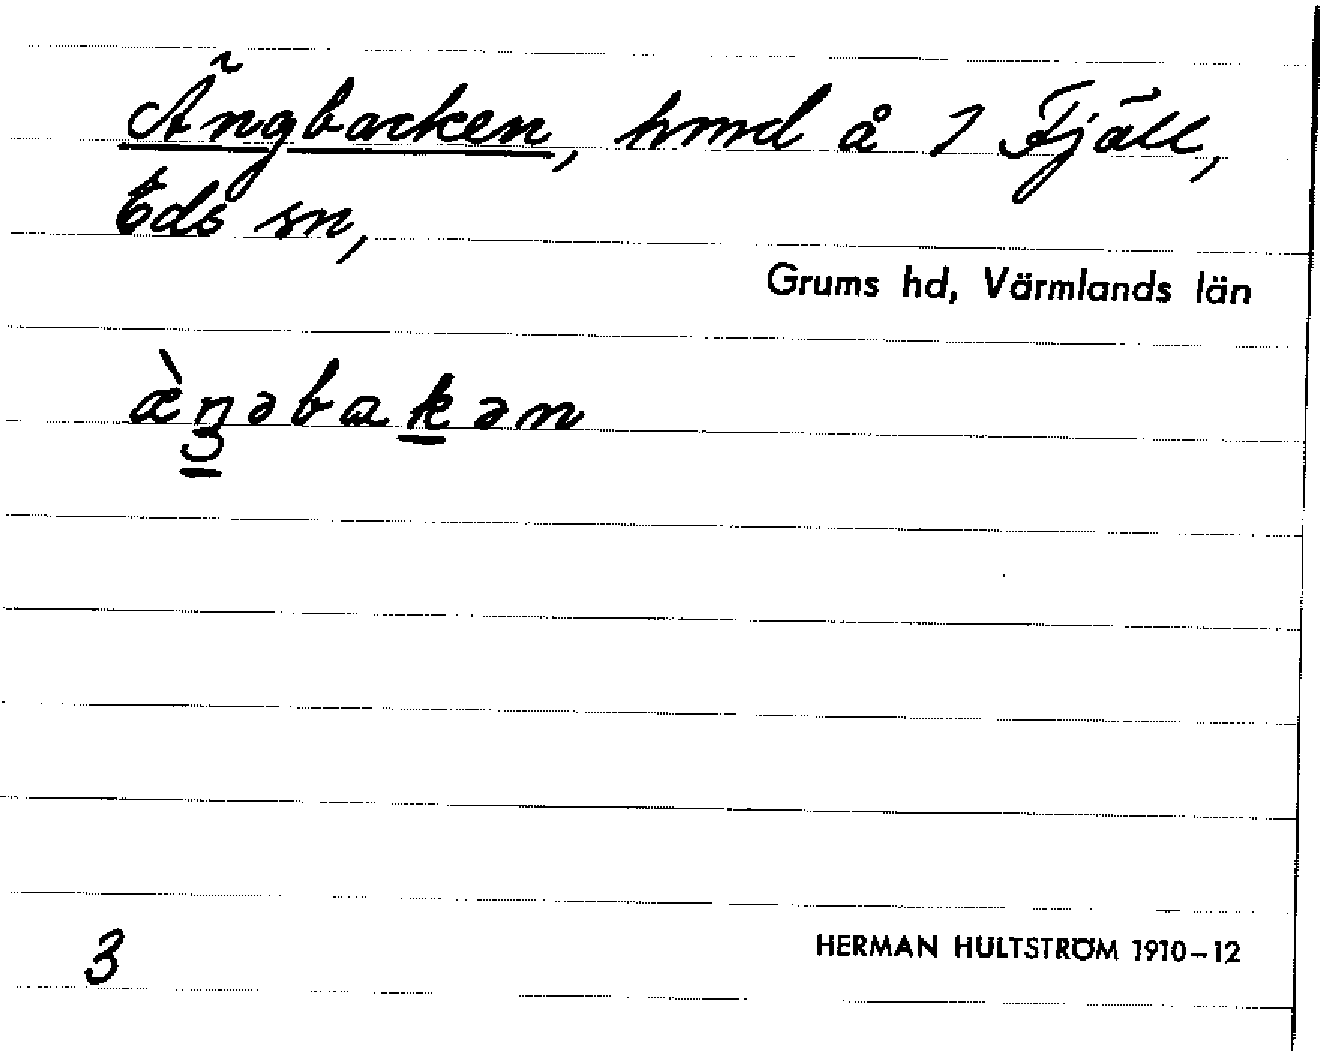 Ängbacken, hmd å 1 Fjäll,
Eds sn,
Grums hd, Värmlands län
æ̀ŋəbakən
3
HERMAN HULTSTRÖM 1910–12